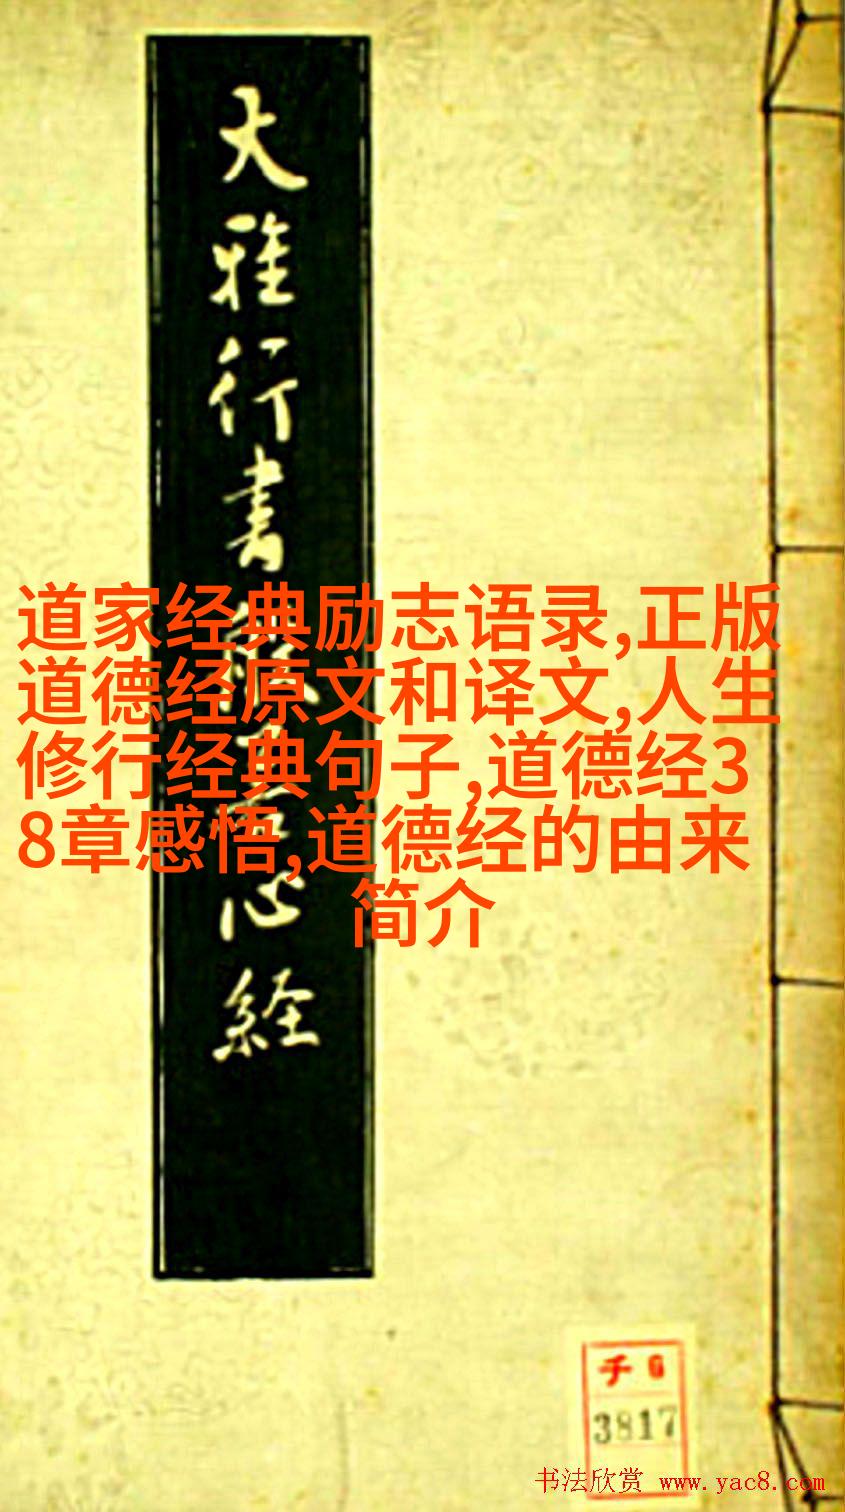 大雅行書
心経
道家经典励志语录,正版
道德经原文和译文,人生
修行经典句子,道德经3
8章感悟,道德经的由来
简介
千 6
3817
书法欣赏 www.yac8.com